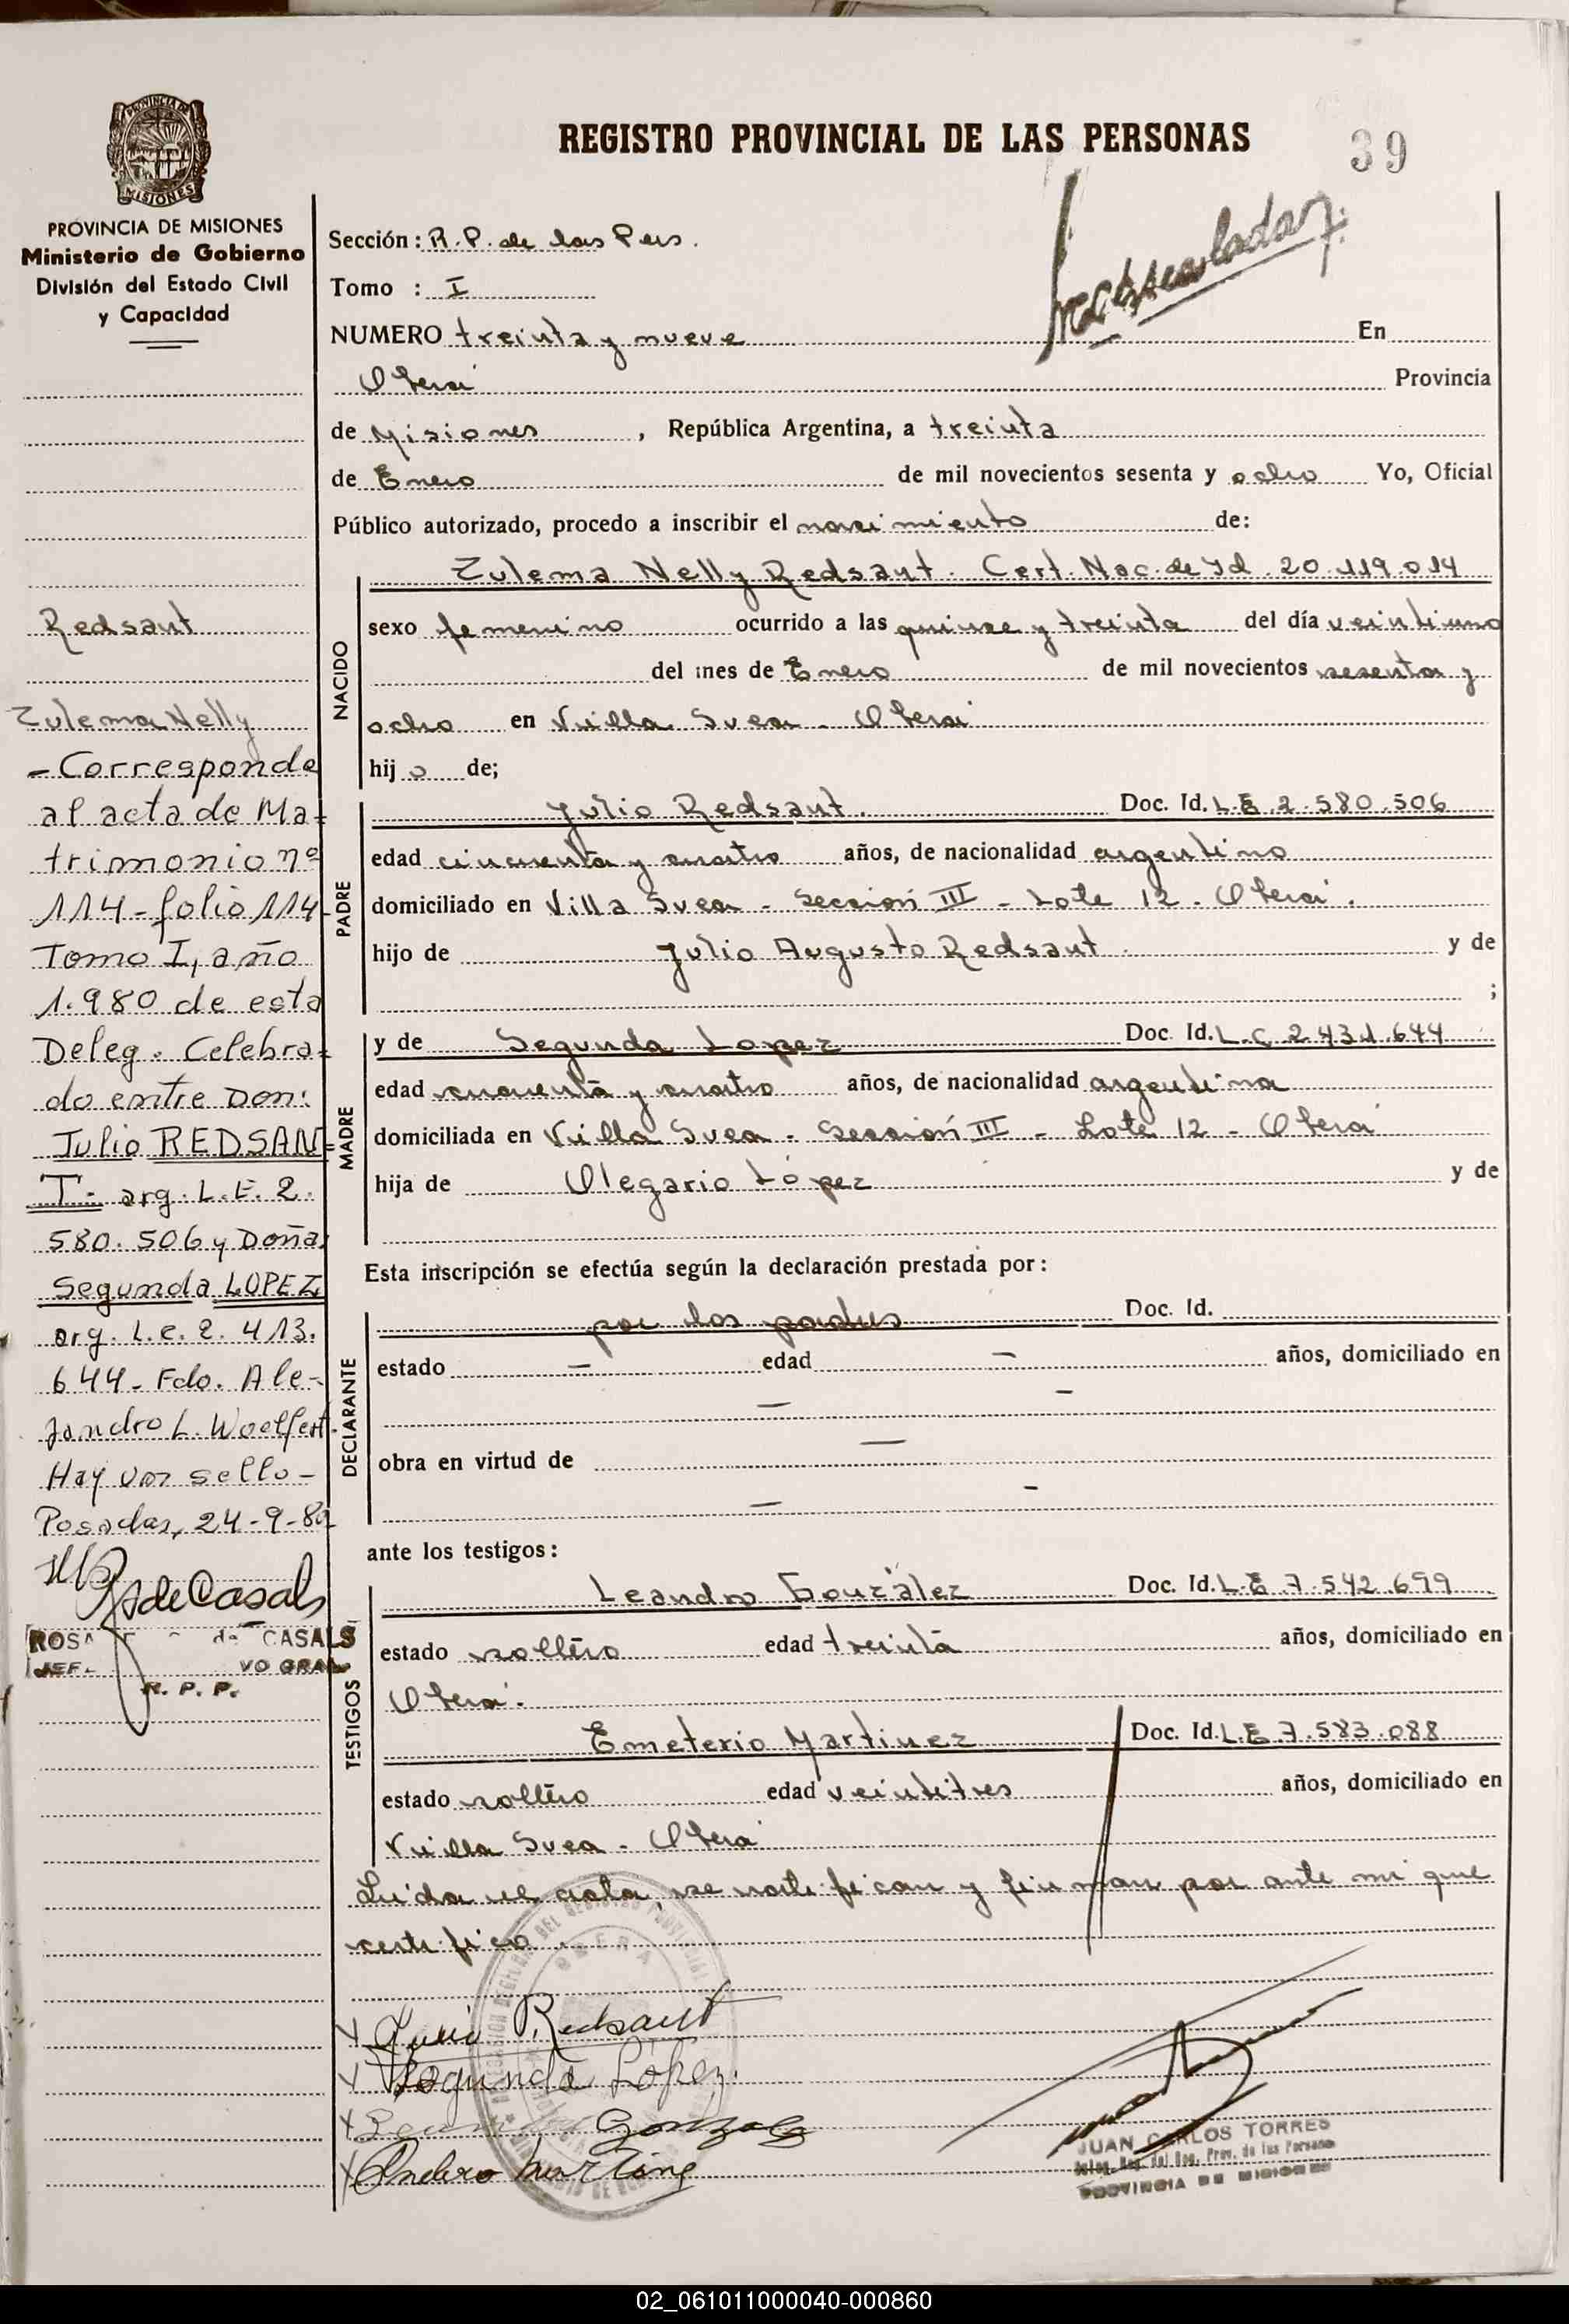 PROVINCIA DE MISIONES
REGISTRO PROVINCIAL DE LAS PERSONAS
39
PROVINCIA DE MISIONES
Ministerio de Gobierno
División del Estado Civil
y Capacidad
Sección: R.P. de las Pers.
Tomo : I
NUMERO treinta y nueve En
Oberá Provincia
de Misiones , República Argentina, a treinta
de Enero de mil novecientos sesenta y ocho Yo, Oficial
Público autorizado, procedo a inscribir el nacimiento de:
Zulema Nelly Redsant. Cert. Nac. de Id. 20.119.014
NACIDO
sexo femenino ocurrido a las quinse y treinta del día veintiuno
del mes de Enero de mil novecientos sesenta y
ocho en Villa Svea - Oberá
hij o de;
PADRE
Julio Redsant. Doc. Id. L.E. 2.580.506
edad cincuenta y cuatro años, de nacionalidad argentino
domiciliado en Villa Svea - Sección III - Lote 12 - Oberá.
hijo de Julio Augusto Redsant. y de
;
MADRE
y de Segunda Lopez Doc. Id. L.C. 2.431.644
edad cuarenta y cuatro años, de nacionalidad argentina
domiciliada en Villa Svea - Sección III - Lote 12 - Oberá
hija de Olegario López y de
Esta inscripción se efectúa según la declaración prestada por:
DECLARANTE
por los padres Doc. Id.
estado — edad — años, domiciliado en
— —
obra en virtud de —
— -
ante los testigos:
TESTIGOS
Leandro González Doc. Id. L.E. 7.542.699
estado soltero edad treinta años, domiciliado en
Oberá.
Emeterio Martinez Doc. Id. L.E. 7.583.088
estado soltero edad veintitres años, domiciliado en
Villa Svea - Oberá
Leida el acta, se ratifican y firman por ante mi que
certifico.
Julio Redsant
Segunda López.
Gonzalez
JUAN CARLOS TORRES
Prov. de las Personas
PROVINCIA DE MISIONES
OBERA
Redsant
Zulema Nelly
- Corresponde
al acta de Ma-
trimonio nº
114 - folio 114
Tomo I, año
1.980 de esta
Deleg. Celebra-
do entre Don:
Julio REDSAN=
T- arg. L.E. 2.
580.506 y Doña
Segunda LOPEZ
arg. L.C. 2.413.
644 - Fdo. Ale-
jandro L. Woelfert.
Hay un sello -
Posadas, 24-9-80
de Casals
ROSA de CASALS
VO GRAL
R. P. P.
02_061011000040-000860